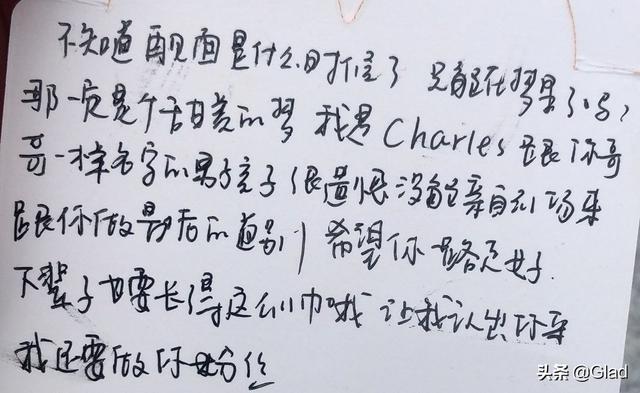 不知道再见面是什么时候了 只能在梦里了吗,
那一定是个甜美的梦 我是Charles 跟你哥
哥一样名字的男孩子 很遗憾没能亲自到场来
跟你做最后的道别 希望你一路走好
下辈子也要长得这么帅哦 让我认出你来
我还要做你粉丝
头条 @Glad